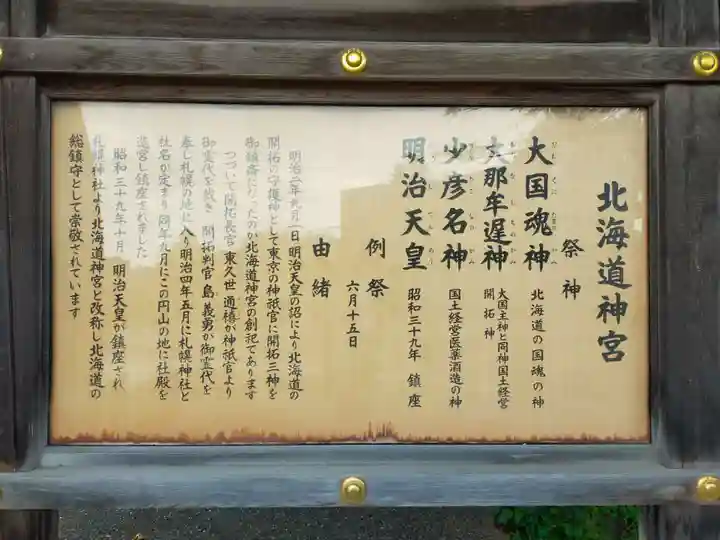 北海道神宮
祭神
大国魂神 北海道の国魂の神
大那牟遅神 大国主神と同神国土経営
開拓神
少彦名神 国土経営医薬酒造の神
明治天皇 昭和三十九年 鎮座
例祭
六月十五日
由緒
明治二年九月一日明治天皇の詔により北海道の
開拓の守護神として東京の神祇官に開拓三神を
御鎮斎になったのが北海道神宮の創祀であります
つづいて開拓長官 東久世 通禧が神祇官より
御霊代を戴き 開拓判官 島 義勇が御霊代を
奉じ札幌の地に入り明治四年五月に札幌神社と
社名が定まり同年九月にこの円山の地に社殿を
造営し鎮座されました
昭和三十九年十月 明治天皇が鎮座され
札幌神社より北海道神宮と改称し北海道の
総鎮守として崇敬されています